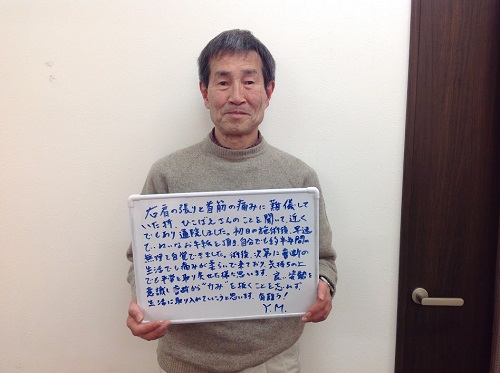 右肩の張りと首筋の痛みに難儀して
いた時、ひこばえさんのことを聞って、近く
でもあり通院しました。初日の施術後、早速
ていねいなお手紙を頂き、自分でも約半年間の
無理を自覚できました。術後、次第に普段の
生活でも痛みが柔らいで来ており、気持ちの上
でも平静を取り戻せた様に思います。良い姿勢を
意識し普段から"力み"を抜くことを忘れず、
生活に取り入れていこうと思います。有難う!
Y.M.